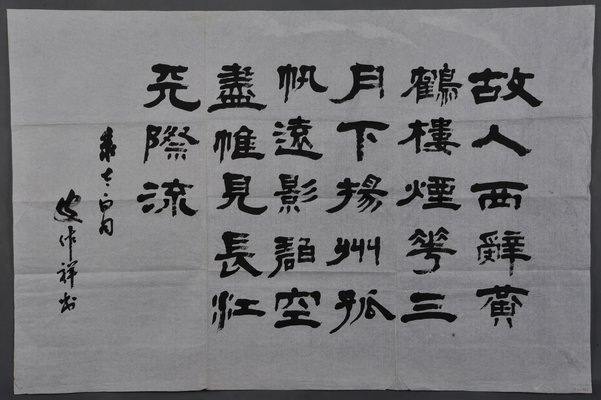 故人西辭黃
鶴樓煙花三
月下揚州孤
帆遠影碧空
盡惟見長江
天際流